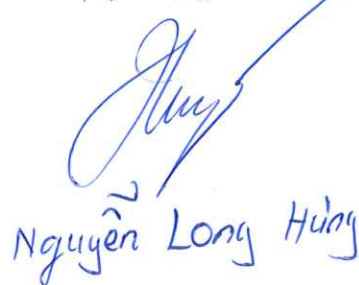 Nguyễn Long Hùng